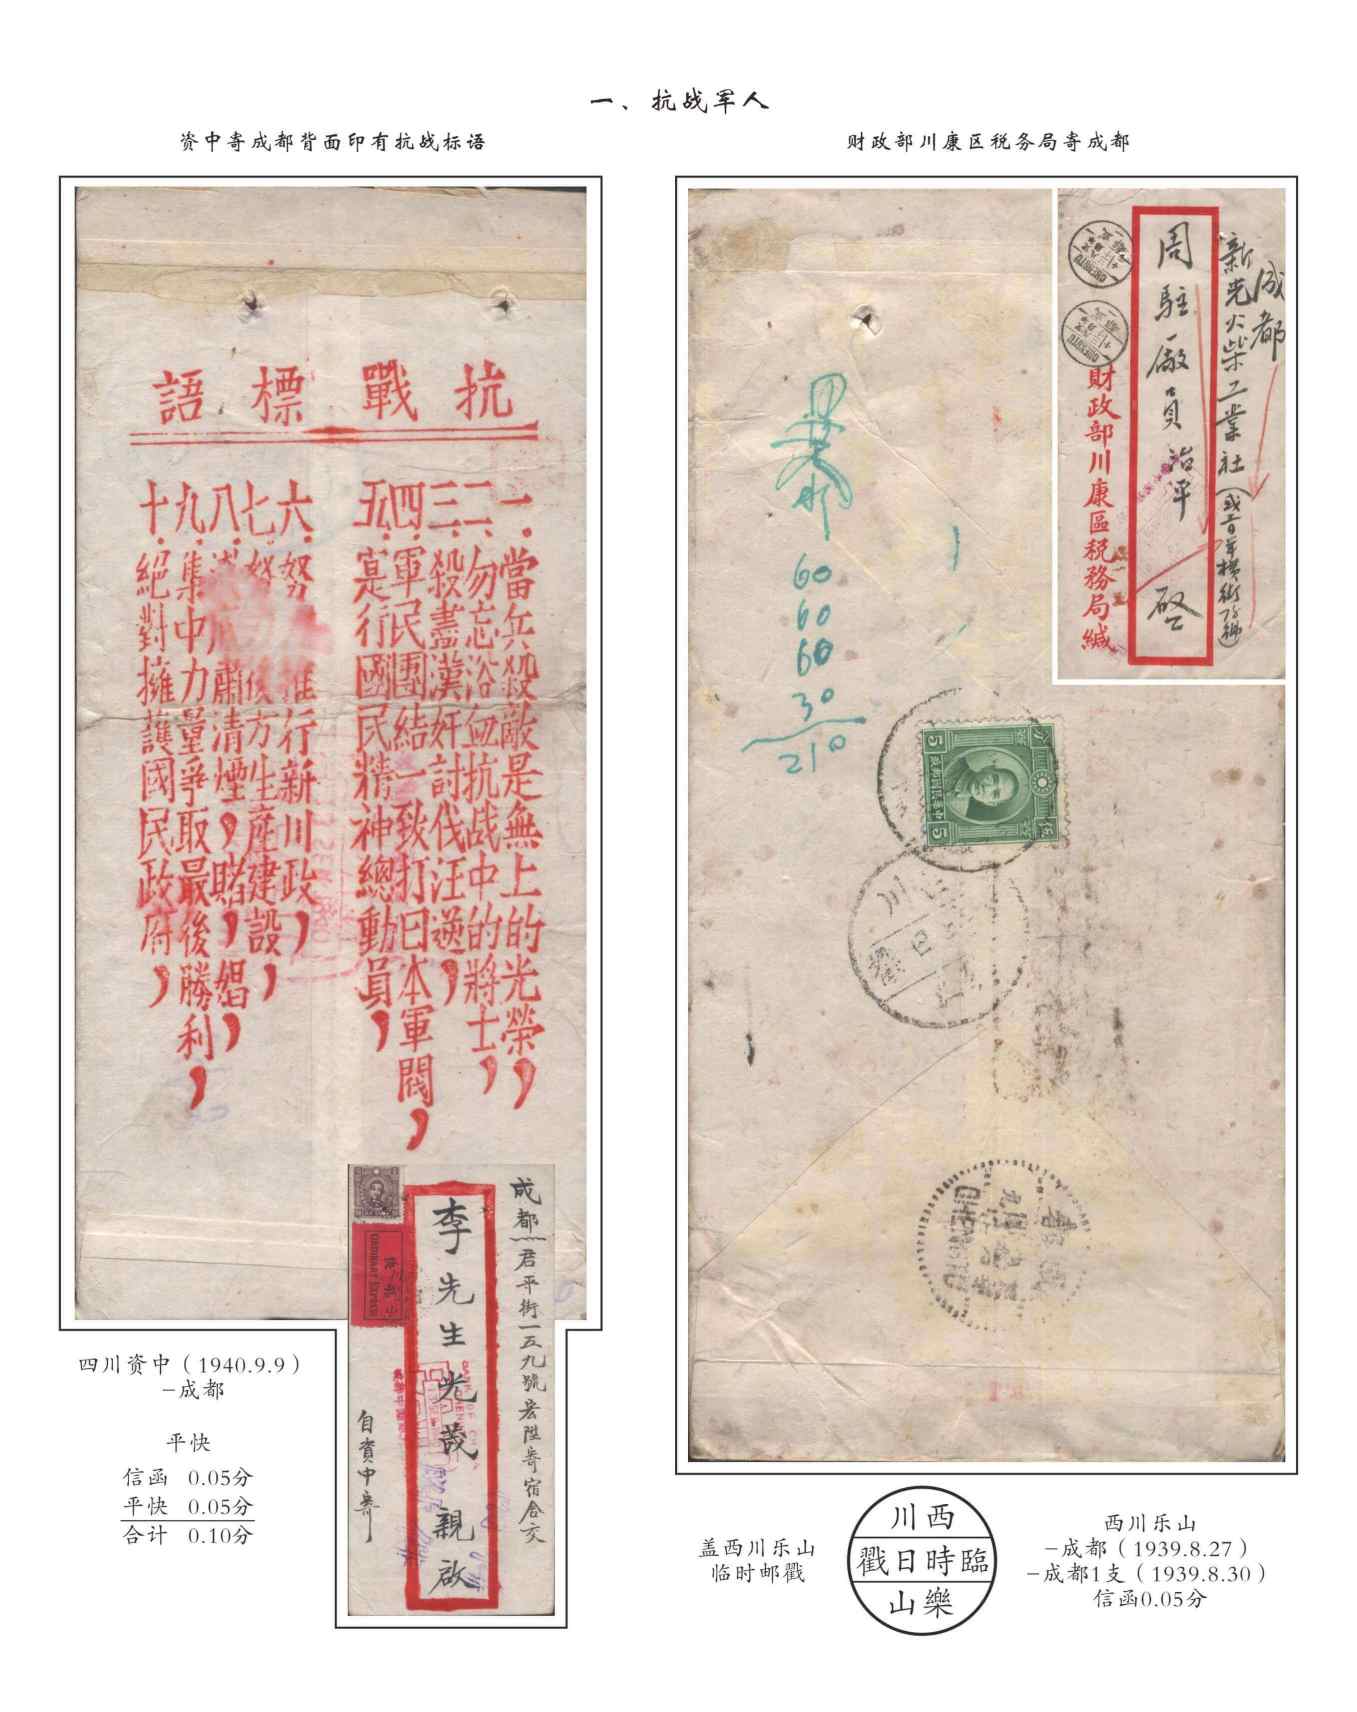 一、抗战军人
资中寄成都背面印有抗战标语
抗戰標語
一.當兵殺敵是無上的光榮,
二、勿忘浴血抗战中的將士,
三、殺盡漢奸討伐汪逆,
四.軍民團結一致打日本軍閥,
五.寔行國民精神總動員,
六.努 推行新川政,
七.努 後方生産建設,
八. 肅清煙,賭,娼,
九.集中力量爭取最後勝利,
十.絕對擁護國民政府,
成都君平街一五九號 寄宿舍交
李先生光 親啟
自資中寄
ORDINARY EXPRESS
四川资中（1940.9.9）
–成都
平快
信函 0.05分
平快 0.05分
合计 0.10分
财政部川康区税务局寄成都
成都
新光火柴工業社(或三百年横街78號)
周駐廠員治平 啓
財政部川康區税務局緘
CHENGTU
CHENGTU
60
60
60
30
210
5
5
川
戳日
成都
CHENGTU
盖西川乐山
临时邮戳
川西
戳日時臨
山樂
西川乐山
–成都（1939.8.27）
–成都1支（1939.8.30）
信函0.05分